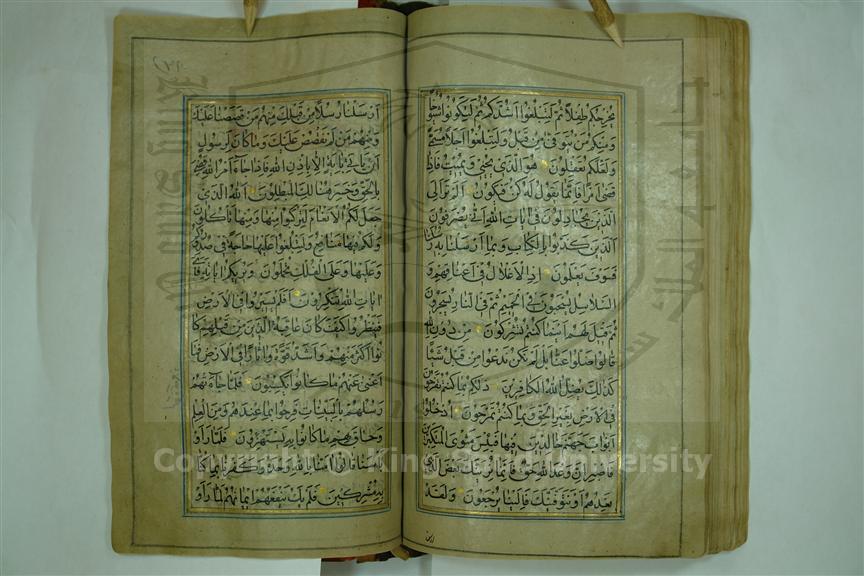 يخرجكم طفلا ثم لتبلغوا اشدكم ثم لتكونوا شيوخا
ومنكم من يتوفى من قبل ولتبلغوا اجلا مسمى
ولعلكم تعقلون هو الذي يحيي ويميت فاذا
قضى امرا فانما يقول له كن فيكون الم تر الى
الذين يجادلون في ايات الله انى يصرفون
الذين كذبوا بالكتاب وبما ارسلنا به رسلنا
فسوف يعلمون اذ الاغلال في اعناقهم و
السلاسل يسحبون في الحميم ثم في النار يسجرون
ثم قيل لهم اينما كنتم تشركون من دون الله
قالوا ضلوا عنا بل لم نكن ندعوا من قبل شيئا
كذلك يضل الله الكافرين ذلكم بما كنتم تفرحون
في الارض بغير الحق وبما كنتم تمرحون ادخلوا
ابواب جهنم خالدين فيها فبئس مثوى المتكبرين
فاصبر ان وعد الله حق فاما نرينك بعض الذي
نعدهم او نتوفينك فالينا يرجعون ولقد
ارسلنا رسلا من قبلك منهم من قصصنا عليك
ومنهم من لم نقصص عليك وما كان لرسول
ان ياتي باية الا باذن الله فاذا جاء امر الله قضي
بالحق وخسر هنالك المبطلون الله الذي
جعل لكم الانعام لتركبوا منها ومنها تاكلون
ولكم فيها منافع ولتبلغوا عليها حاجة في صدوركم
وعليها وعلى الفلك تحملون ويريكم اياته فاي
ايات الله تنكرون افلم يسيروا في الارض
فينظروا كيف كان عاقبة الذين من قبلهم كا
نوا اكثر منهم واشد قوة واثارا في الارض فما
اغنى عنهم ما كانوا يكسبون فلما جاءتهم
رسلهم بالبينات فرحوا بما عندهم من العلم
وحاق بهم ما كانوا به يستهزؤن فلما راو
باسنا قالوا امنا بالله وحده وكفرنا بما كنا
به مشركين فلم يك ينفعهم ايمانهم لما راو
Copyright © King Saud University